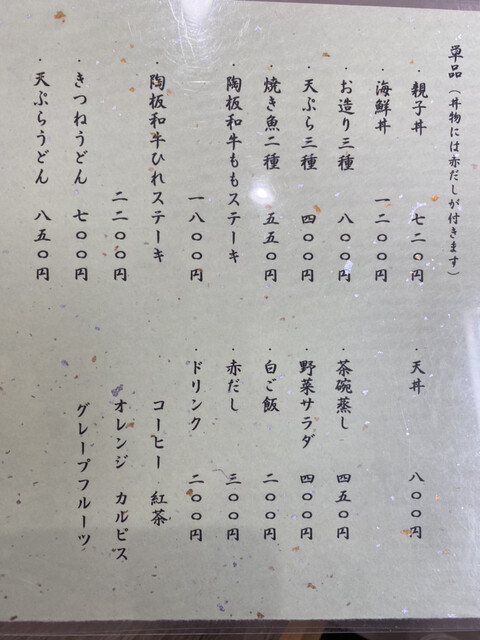 単品（丼物には赤だしが付きます）
・親子丼　七二〇円
・海鮮丼　一二〇〇円
・お造り三種　八〇〇円
・天ぷら三種　四〇〇円
・焼き魚二種　五五〇円
・陶板和牛ももステーキ
一八〇〇円
・陶板和牛ひれステーキ
二二〇〇円
・きつねうどん　七〇〇円
・天ぷらうどん　八五〇円
・天丼　八〇〇円
・茶碗蒸し　四五〇円
・野菜サラダ　四〇〇円
・白ご飯　二〇〇円
・赤だし　三〇〇円
・ドリンク　二〇〇円
コーヒー　紅茶
オレンジ　カルピス
グレープフルーツ